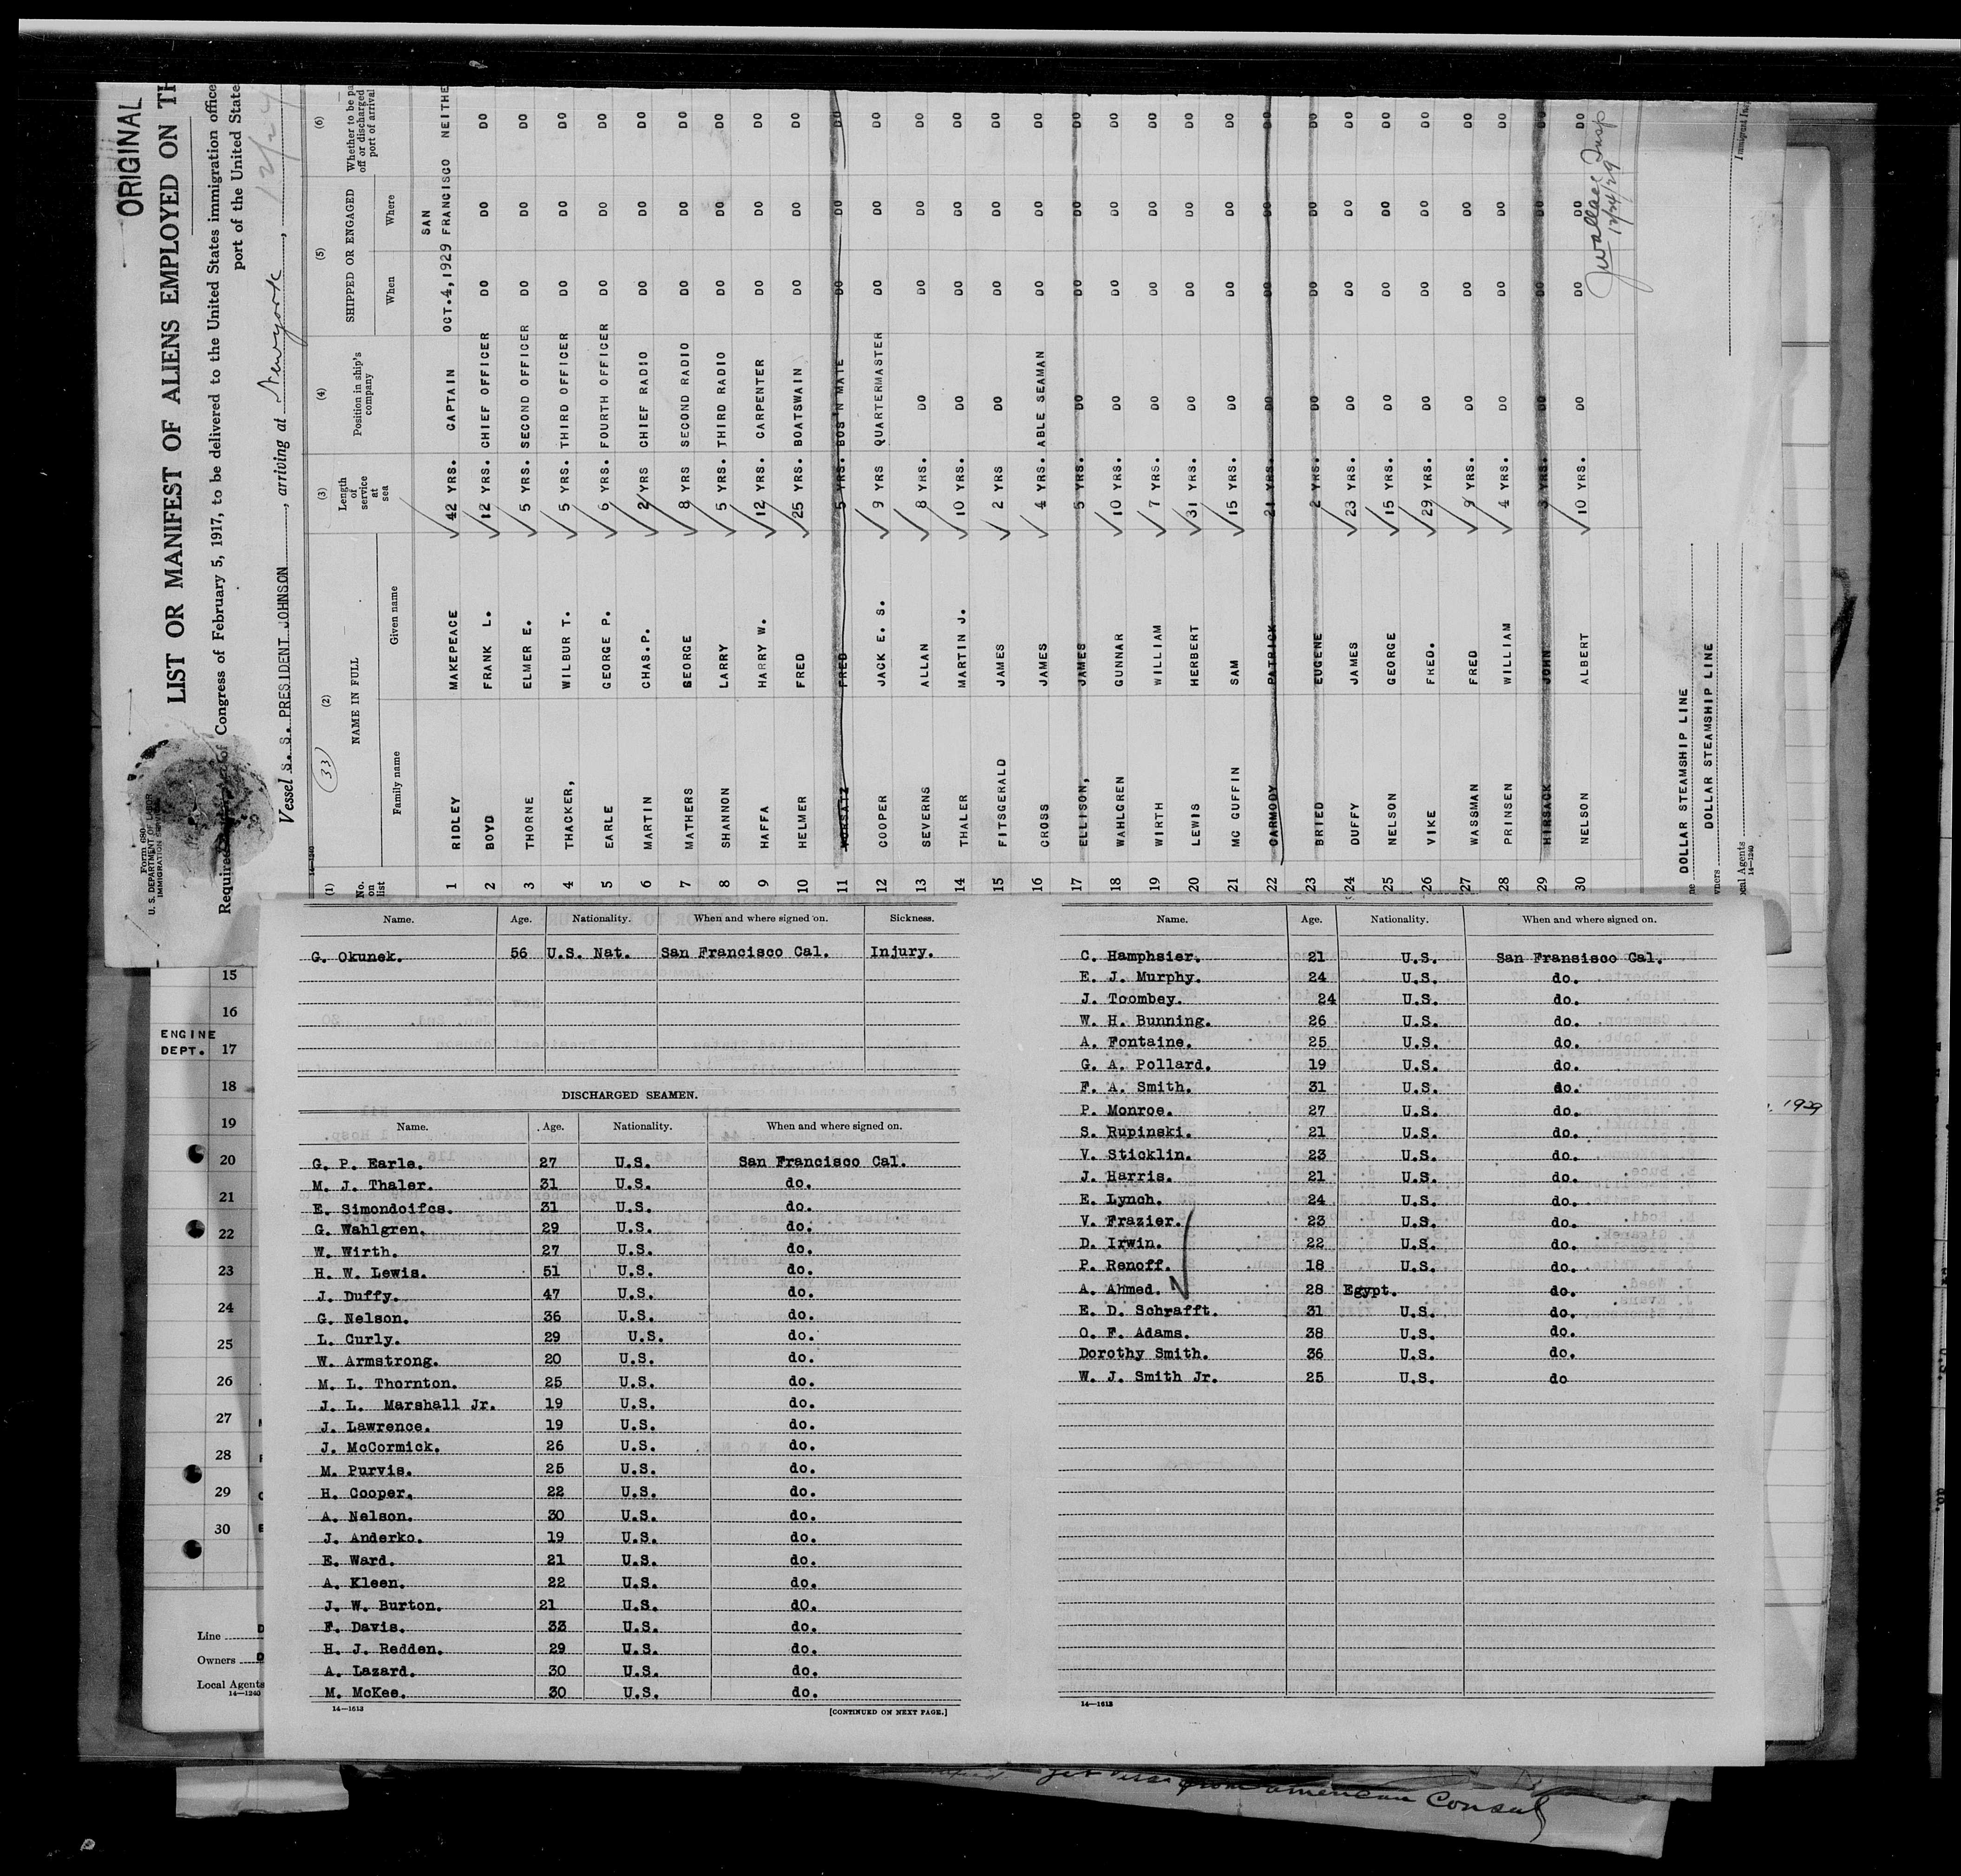 ORIGINAL
U. S. DEPARTMENT OF LABOR
IMMIGRATION SERVICE
LIST OR MANIFEST OF ALIENS EMPLOYED ON TH
Congress of February 5, 1917, to be delivered to the United States immigration office
port of the United State
Vessel S. S. PRESIDENT JOHNSON, arriving at Newyork,
33
14—1240
(1) (2) (3) (4) (5) (6)
No. on list NAME IN FULL Length of service at sea Position in ship's company SHIPPED OR ENGAGED Whether to be pa off or discharged port of arrival
Family name Given name When Where
1 RIDLEY MAKEPEACE 42 YRS. CAPTAIN OCT.4,1929 SAN FRANCISCO NEITHE
2 BOYD FRANK L. 12 YRS. CHIEF OFFICER DO DO DO
3 THORNE ELMER E. 5 YRS. SECOND OFFICER DO DO DO
4 THACKER, WILBUR T. 5 YRS. THIRD OFFICER DO DO DO
5 EARLE GEORGE P. 6 YRS. FOURTH OFFICER DO DO DO
6 MARTIN CHAS.P. 2 YRS CHIEF RADIO DO DO DO
7 MATHERS GEORGE 8 YRS SECOND RADIO DO DO DO
8 SHANNON LARRY 5 YRS. THIRD RADIO DO DO DO
9 HAFFA HARRY W. 12 YRS. CARPENTER DO DO DO
10 HELMER FRED 25 YRS. BOATSWAIN DO DO DO
11 FRED 5 YRS. BOS'N MATE DO DO DO
12 COOPER JACK E. S. 9 YRS QUARTERMASTER DO DO DO
13 SEVERNS ALLAN 8 YRS. DO DO DO DO
14 THALER MARTIN J. 10 YRS. DO DO DO DO
15 FITSGERALD JAMES 2 YRS DO DO DO DO
16 CROSS JAMES 4 YRS. ABLE SEAMAN DO DO DO
17 ELLISON, JAMES 5 YRS. DO DO DO DO
18 WAHLGREN GUNNAR 10 YRS. DO DO DO DO
19 WIRTH WILLIAM 7 YRS. DO DO DO DO
20 LEWIS HERBERT 31 YRS. DO DO DO DO
21 MC GUFFIN SAM 15 YRS. DO DO DO DO
22 CARMODY PATRICK 21 YRS. DO DO DO DO
23 BRIED EUGENE 2 YRS. DO DO DO DO
24 DUFFY JAMES 23 YRS. DO DO DO DO
25 NELSON GEORGE 15 YRS. DO DO DO DO
26 VIKE FRED. 29 YRS. DO DO DO DO
27 WASSMAN FRED 9 YRS. DO DO DO DO
28 PRINSEN WILLIAM 4 YRS. DO DO DO DO
29 HIRSACK JOHN 3 YRS. DO DO DO DO
30 NELSON ALBERT 10 YRS. DO DO DO DO
JWallace Insp
12/24/29
DOLLAR STEAMSHIP LINE
DOLLAR STEAMSHIP LINE
cal Agents
14—1240
15
16
ENGINE
DEPT. 17
18
19
20
21
22
23
24
25
26
27
28
29
30
Line
Owners
Local Agents
14—1240
Name. Age. Nationality. When and where signed on. Sickness.
G. Okunek. 56 U.S. Nat. San Francisco Cal. Injury.
DISCHARGED SEAMEN.
Name. Age. Nationality. When and where signed on.
G. P. Earle. 27 U.S. San Francisco Cal.
M. J. Thaler. 31 U.S. do.
E. Simondoifcs. 31 U.S. do.
G. Wahlgren. 29 U.S. do.
W. Wirth. 27 U.S. do.
H. W. Lewis. 51 U.S. do.
J. Duffy. 47 U.S. do.
G. Nelson. 36 U.S. do.
L. Curly. 29 U.S. do.
W. Armstrong. 20 U.S. do.
M. L. Thornton. 25 U.S. do.
J. L. Marshall Jr. 19 U.S. do.
J. Lawrence. 19 U.S. do.
J. McCormick. 26 U.S. do.
M. Purvis. 25 U.S. do.
H. Cooper. 22 U.S. do.
A. Nelson. 30 U.S. do.
J. Anderko. 19 U.S. do.
E. Ward. 21 U.S. do.
A. Kleen. 22 U.S. do.
J. W. Burton. 21 U.S. dO.
F. Davis. 33 U.S. do.
H. J. Redden. 29 U.S. do.
A. Lazard. 30 U.S. do.
M. McKee. 30 U.S. do.
14—1613 [CONTINUED ON NEXT PAGE.]
Name. Age. Nationality. When and where signed on.
C. Hamphsier. 21 U.S. San Fransisco Cal.
E. J. Murphy. 24 U.S. do.
J. Toombey. 24 U.S. do.
W. H. Bunning. 26 U.S. do.
A. Fontaine. 25 U.S. do.
G. A. Pollard. 19 U.S. do.
F. A. Smith. 31 U.S. do.
P. Monroe. 27 U.S. do.
S. Rupinski. 21 U.S. do.
V. Sticklin. 23 U.S. do.
J. Harris. 21 U.S. do.
E. Lynch. 24 U.S. do.
V. Frazier. 23 U.S. do.
D. Irwin. 22 U.S. do.
P. Renoff. 18 U.S. do.
A. Ahmed. 28 Egypt. do.
E. D. Schrafft. 31 U.S. do.
O. F. Adams. 38 U.S. do.
Dorothy Smith. 36 U.S. do.
W. J. Smith Jr. 25 U.S. do
14—1613
1929
from american Consul